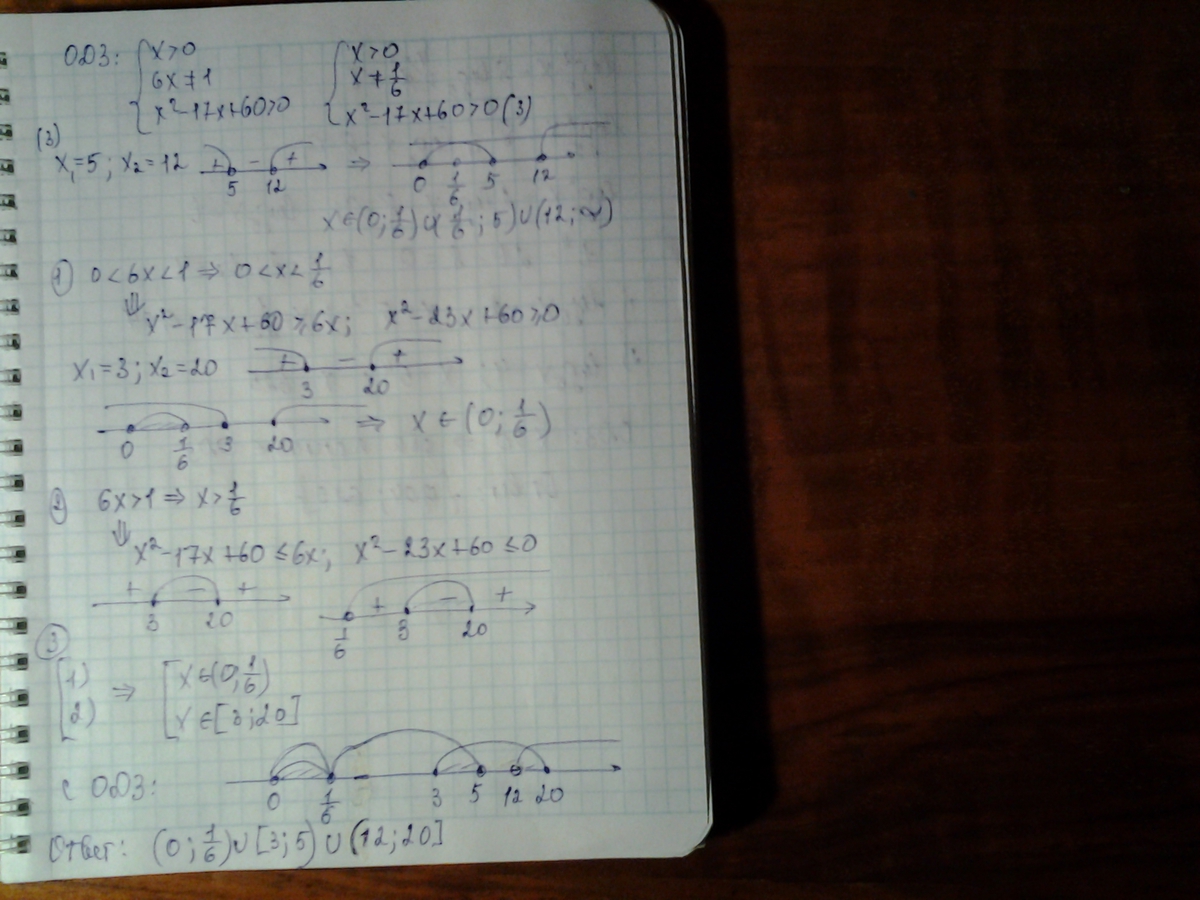 ОДЗ: { x>0 { x>0
6x≠1 x≠1/6
x²-17x+60>0 x²-17x+60>0 (3)
(3)
x₁=5; x₂=12 + - + 5 12 ⇒ 0 1/6 5 12
x∈(0;1/6)∪(1/6;5)∪(12;∞)
1) 0<6x<1 ⇒ 0<x<1/6
⇓ x²-17x+60≥6x; x²-23x+60≥0
x₁=3; x₂=20 + - + 3 20
0 1/6 3 20 ⇒ x∈(0;1/6)
2) 6x>1 ⇒ x>1/6
⇓ x²-17x+60≤6x; x²-23x+60≤0
+ - + + - +
3 20 1/6 3 20
3)
[ 1) ⇒ [ x∈(0;1/6)
2) x∈[3;20]
с ОДЗ: 0 1/6 3 5 12 20
Ответ: (0;1/6)∪[3;5)∪(12;20]